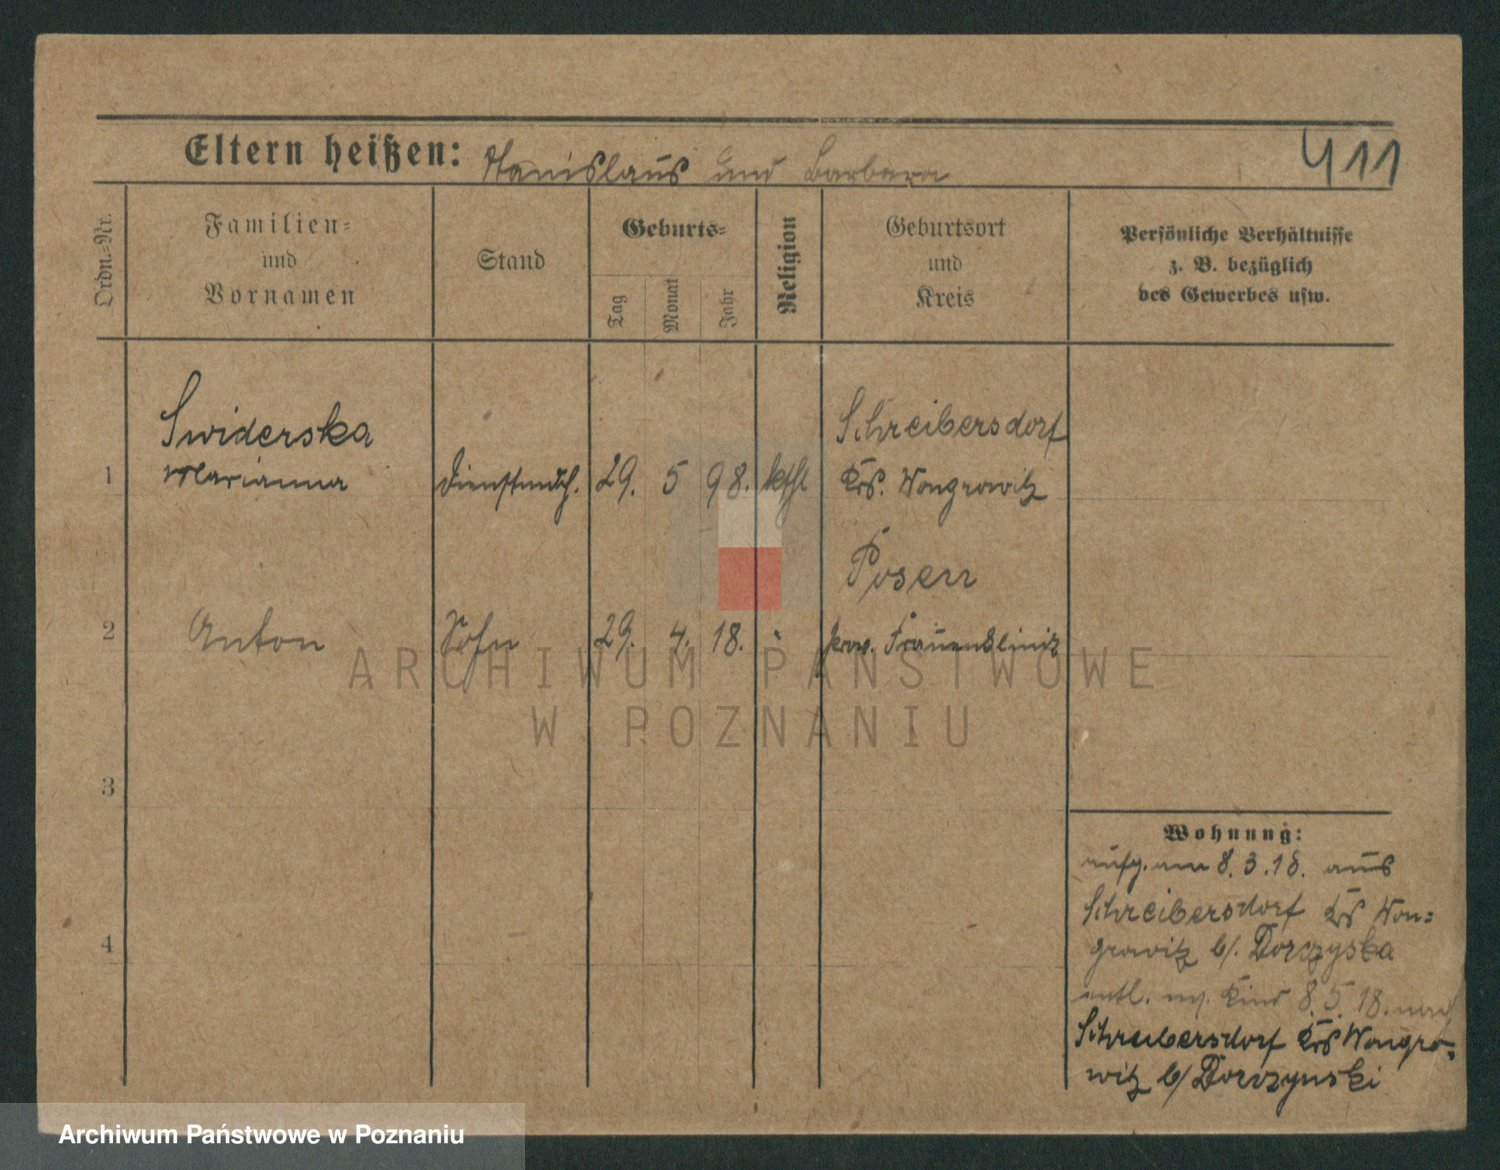 Eltern heißen: Stanislaus und Barbara
411
Ordn.-Nr.
Familien-
und
Vornamen
Stand
Geburts-
Tag
Monat
Jahr
Religion
Geburtsort
und
Kreis
Persönliche Verhältnisse
z. B. bezüglich
des Gewerbes usw.
Swiderska
Schreibersdorf
1 Marianna Dienstmdch. 29. 5 98. kthl Krs. Wongrowitz
Posen
2 Anton Sohn 29. 4. 18. prov. Frauenklinik
3
4
Wohnung:
aufg. am 8.3.18. aus
Schreibersdorf Krs Won=
growitz b/. Dorczyska
entl. m. Kind 8.5.18. nach
Schreibersdorf Krs Wongro=
witz b/ Dorczynski
ARCHIWUM PAŃSTWOWE
W POZNANIU
Archiwum Państwowe w Poznaniu